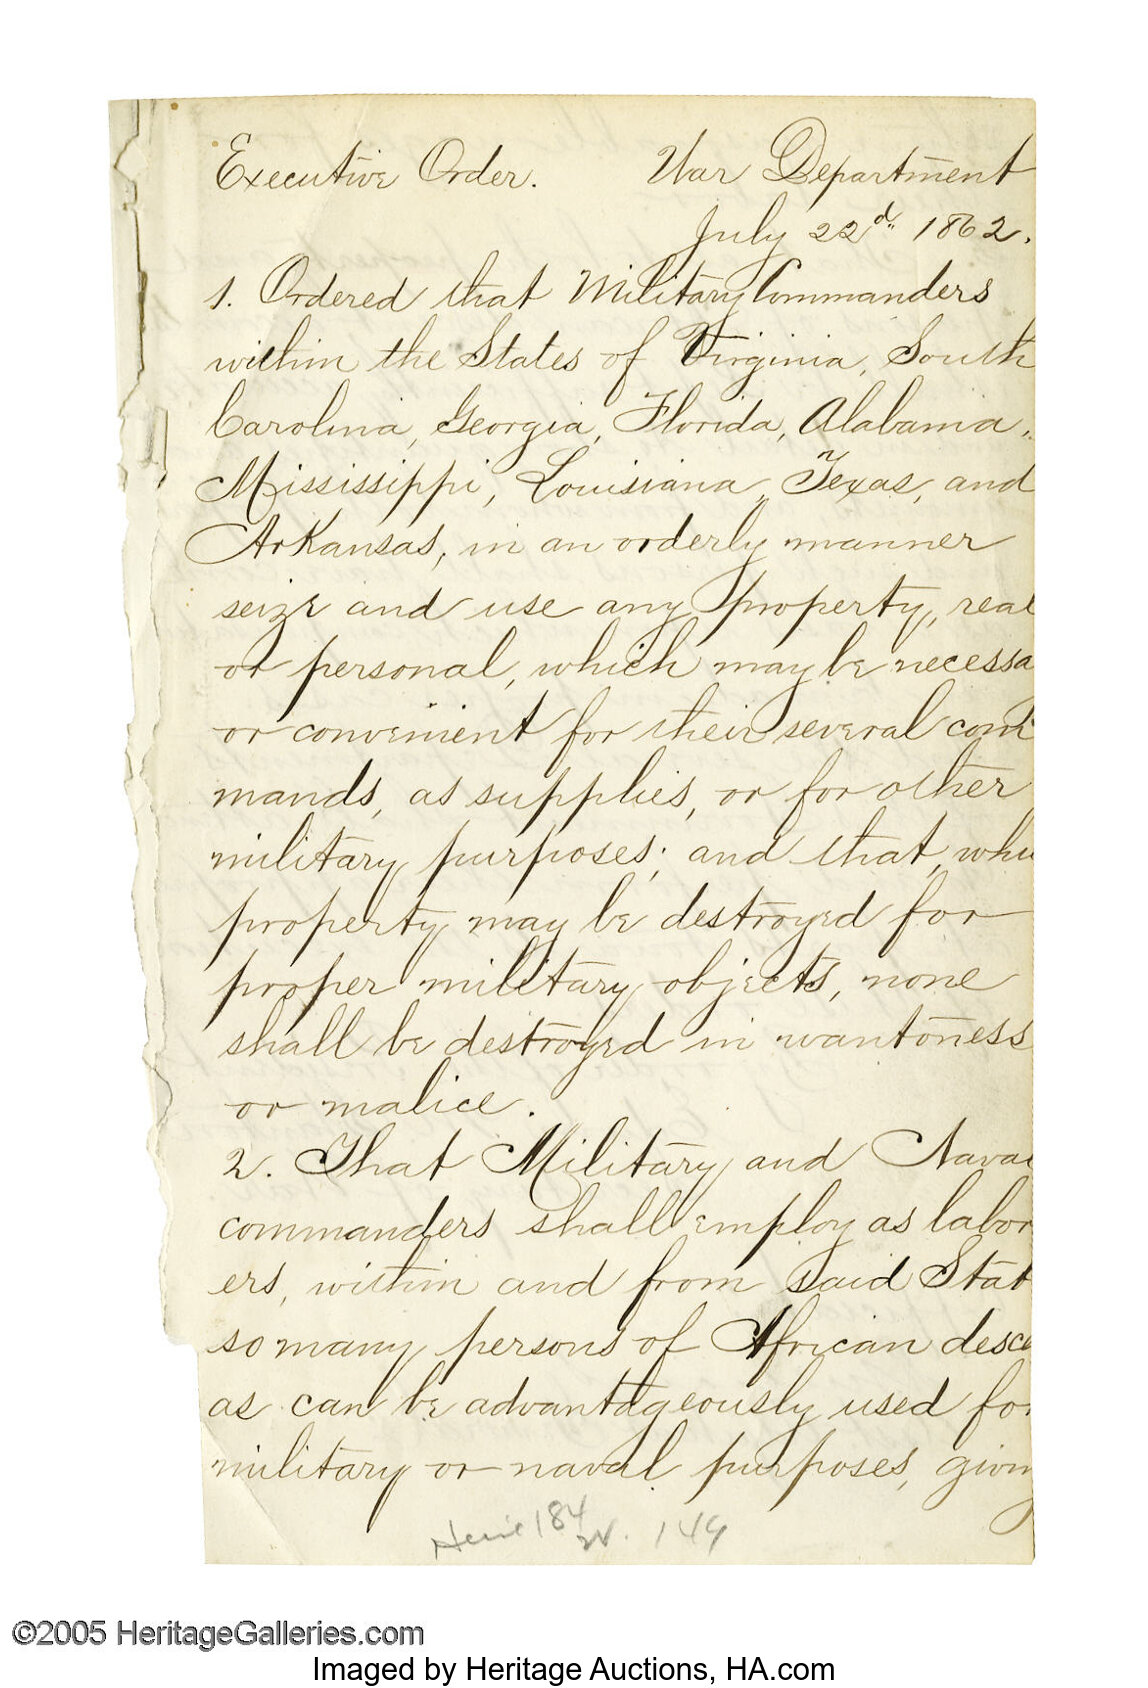 Executive Order. War Department
July 22d. 1862.
1. Ordered that Military Commanders
within the States of Virginia, South
Carolina, Georgia, Florida, Alabama,
Mississippi, Louisiana, Texas, and
Arkansas, in an orderly manner
seize and use any property, real
or personal, which may be necessa
or convenient for their several com
mands, as supplies, or for other
military purposes; and that, whi
property may be destroyed for
proper military objects, none
shall be destroyed in wantoness
or malice.
2. That Military and Naval
commanders shall employ as labor
ers, within and from said Stat
so many persons of African desce
as can be advantageously used for
military or naval purposes, giving
184
149
©2005 HeritageGalleries.com
Imaged by Heritage Auctions, HA.com